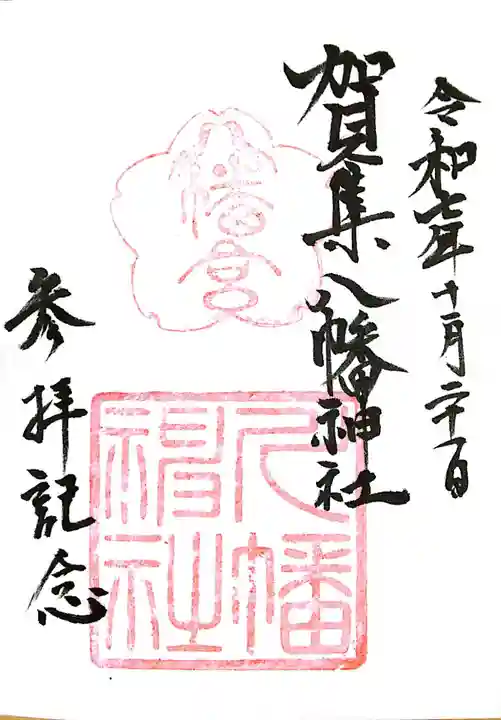 令和七年十一月二十一日
賀集八幡神社
八幡宮
八幡
神社
参拝記念